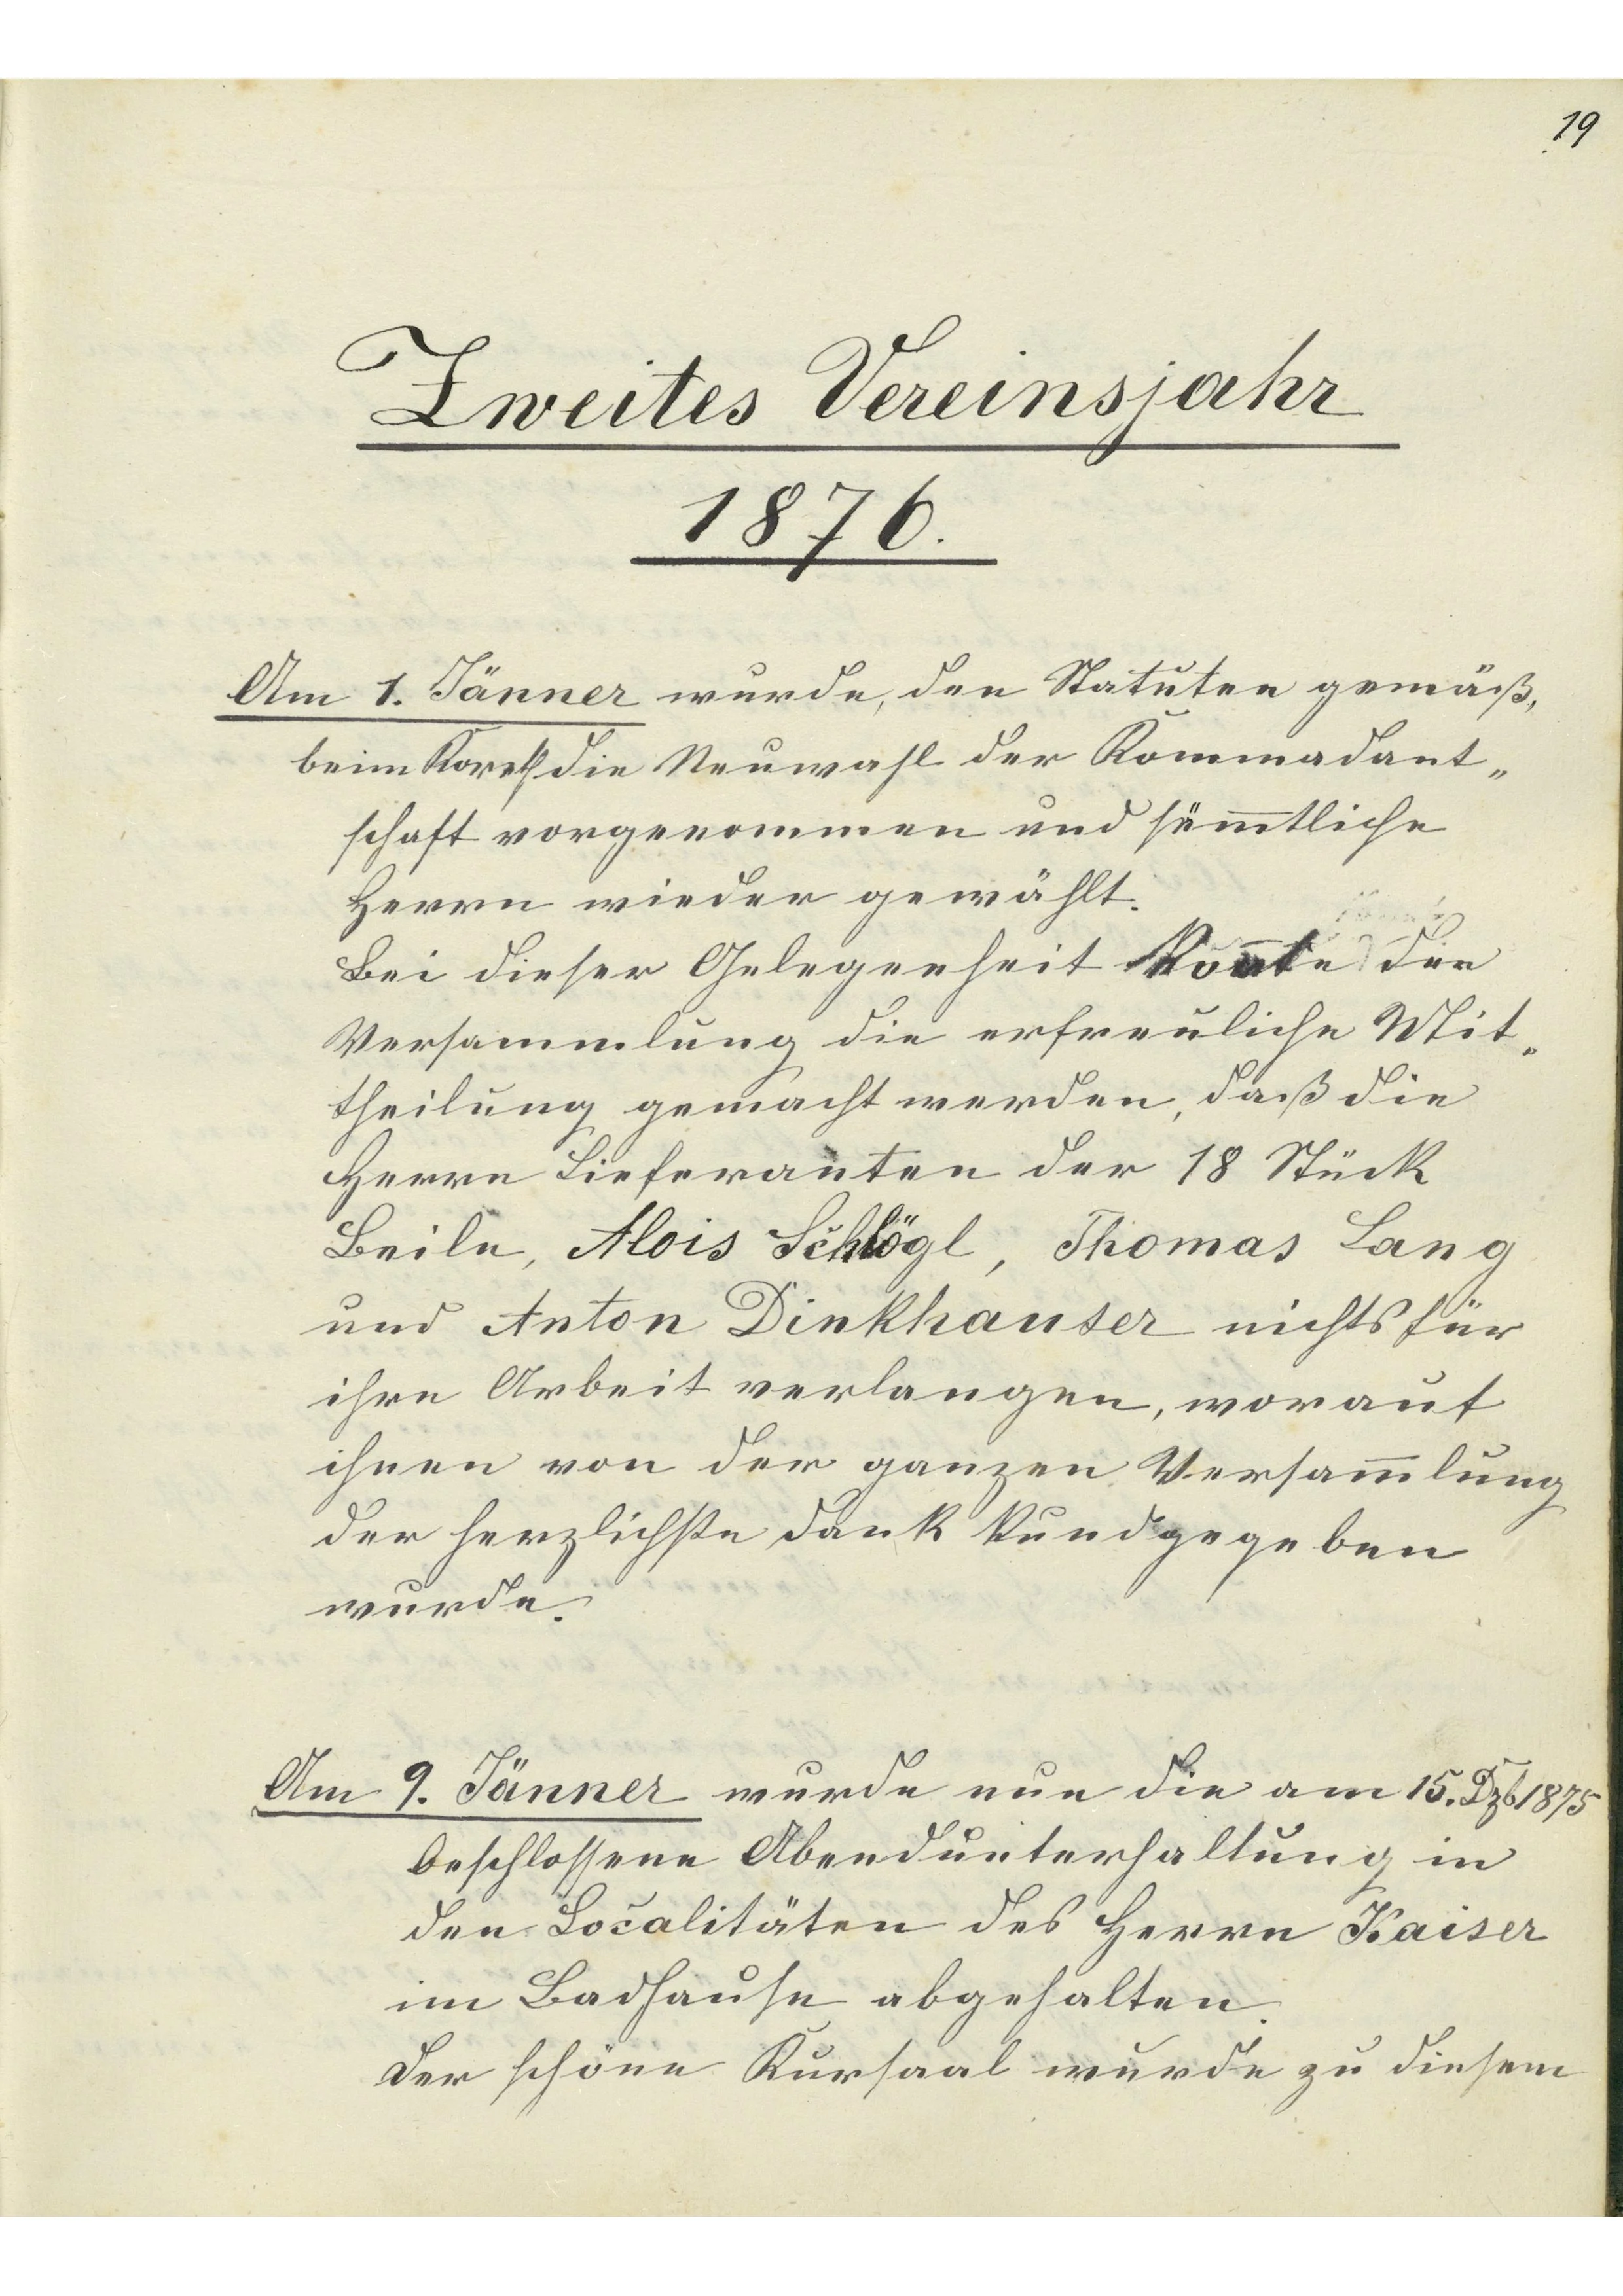 19
Zweites Vereinsjahr
1876.
Am 1. Jänner wurde, den Statuten gemäß,
beim Koreth die Neuwahl der Kommadant„
schaft vorgenommen und sämtliche
Herrn wieder gewählt.
Bei dieser Gelegenheit konnte der
Versammlung die erfreuliche Mit„
theilung gemacht werden, daß die
Herrn Lieferanten der 18 Stück
Beile, Alois Schlögl, Thomas Lang
und Anton Dinkhauser nichts für
ihre Arbeit verlangen, worauf
ihnen von der ganzen Versam̅lung
der herzlichste Dank kundgegeben
wurde.
Am 9. Jänner wurde nun die am 15. Dzb 1875
beschlossene Abendunterhaltung in
den Localitäten des Herrn Kaiser
im Badhause abgehalten.
Der schöne Kursaal wurde zu diesem